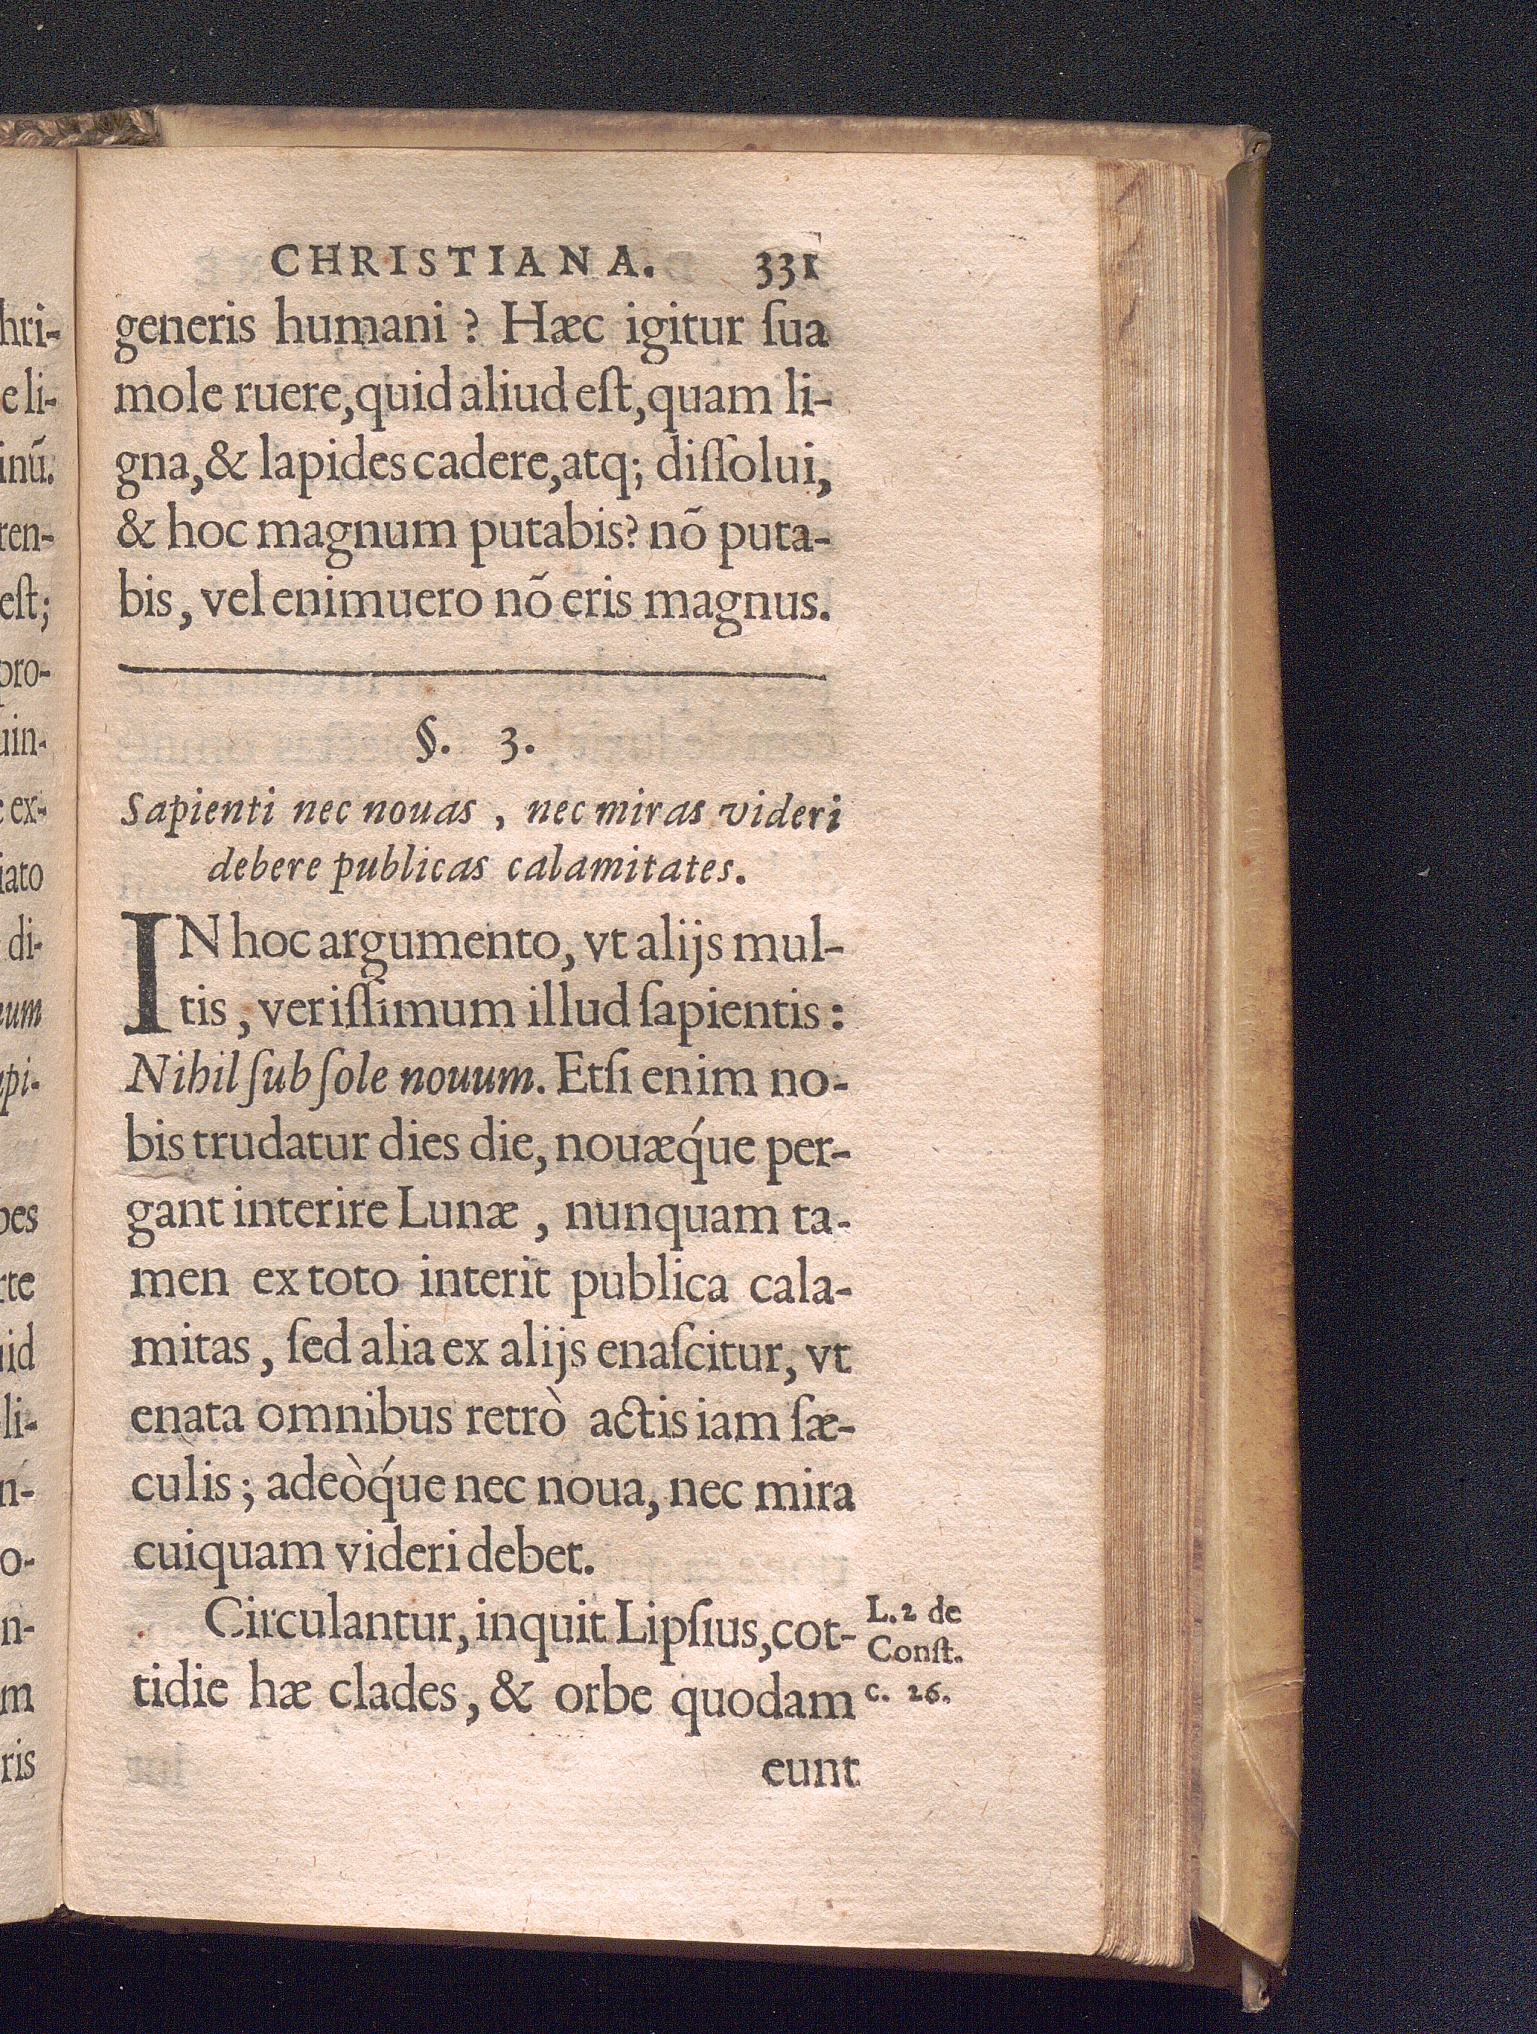 CHRISTIANA. 331
generis humani ? Hæc igitur ſua
mole ruere,quid aliud eſt,quam li-
gna,& lapides cadere,atq; diſſolui,
& hoc magnum putabis? nõ puta-
bis, vel enimuero nõ eris magnus.
§. 3.
Sapienti nec nouas, nec miras videri
debere publicas calamitates.
IN hoc argumento, vt alijs mul-
tis, veriſſimum illud ſapientis:
Nihil ſub ſole nouum. Etſi enim no-
bis trudatur dies die, nouæq́ue per-
gant interire Lunæ, nunquam ta-
men ex toto interit publica cala-
mitas, ſed alia ex alijs enaſcitur, vt
enata omnibus retrò actis iam ſæ-
culis; adeòq́ue nec noua, nec mira
cuiquam videri debet.
Circulantur, inquit Lipſius,cot-
tidie hæ clades, & orbe quodam
L. 2 de
Conſt.
c. 26.
eunt
hri-
e li-
inũ.
ren-
eſt;
pro-
uin-
ex-
iato
di-
num
pi-
bes
rte
uid
li-
n-
o-
n-
m
ris